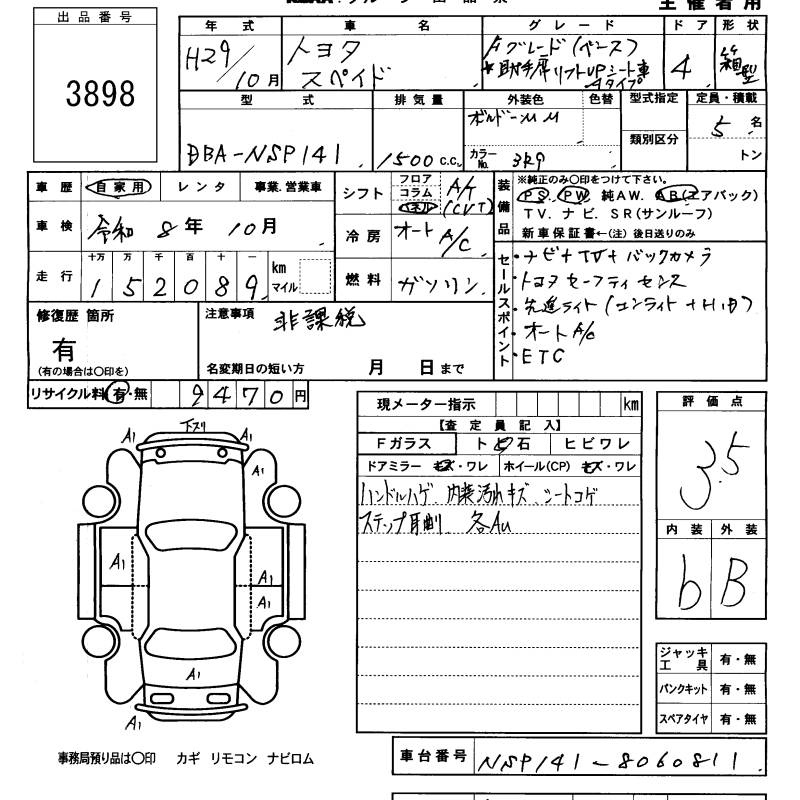 主催者用
出品番号
3898
年式 車名 グレード ドア 形状
H29/10月 トヨタ スペイド Fグレード(ベース)
*助手席リフトUPシート車
Aタイプ
4 箱型
型式 排気量 外装色 色替 型式指定 定員・積載
DBA-NSP141 1500 c.c. ボルドーMM
カラーNo. 3R9
類別区分
5名
トン
車歴 自家用 レンタ 事業.営業車
車検 令和 8年 10月
走行 十万 万 千 百 十 一
152089 km マイル
シフト フロア コラム パネル A/T (CVT)
冷房 オート A/C
燃料 ガソリン
装備品 ※純正のみ〇印をつけて下さい。
PS. PW 純AW. AB(エアバック)
TV. ナビ. SR(サンルーフ)
新車保証書←(注) 後日送りのみ
セールスポイント
・ナビ+TV+バックカメラ
・トヨタセーフティセンス
・先進ライト(コンライト+H.B)
・オートA/C
・ETC
修復歴 箇所
有
(有の場合は〇印を)
注意事項 非課税
名変期日の短い方 月 日まで
リサイクル料 有・無 9470円
現メーター指示 km
【査定員記入】
Fガラス トビ石 ヒビワレ
ドアミラー キズ・ワレ ホイール(CP) キズ・ワレ
ハンドルハゲ、内装汚れキズ、シートコゲ
ステップ耳削 各AU
評価点
3.5
内装 外装
b B
A1 下スリ A1
A1
A1
A1
A1
A1
A1
ジャッキ工具 有・無
パンクキット 有・無
スペアタイヤ 有・無
事務局預り品は〇印 カギ リモコン ナビロム
車台番号 NSP141-8060811